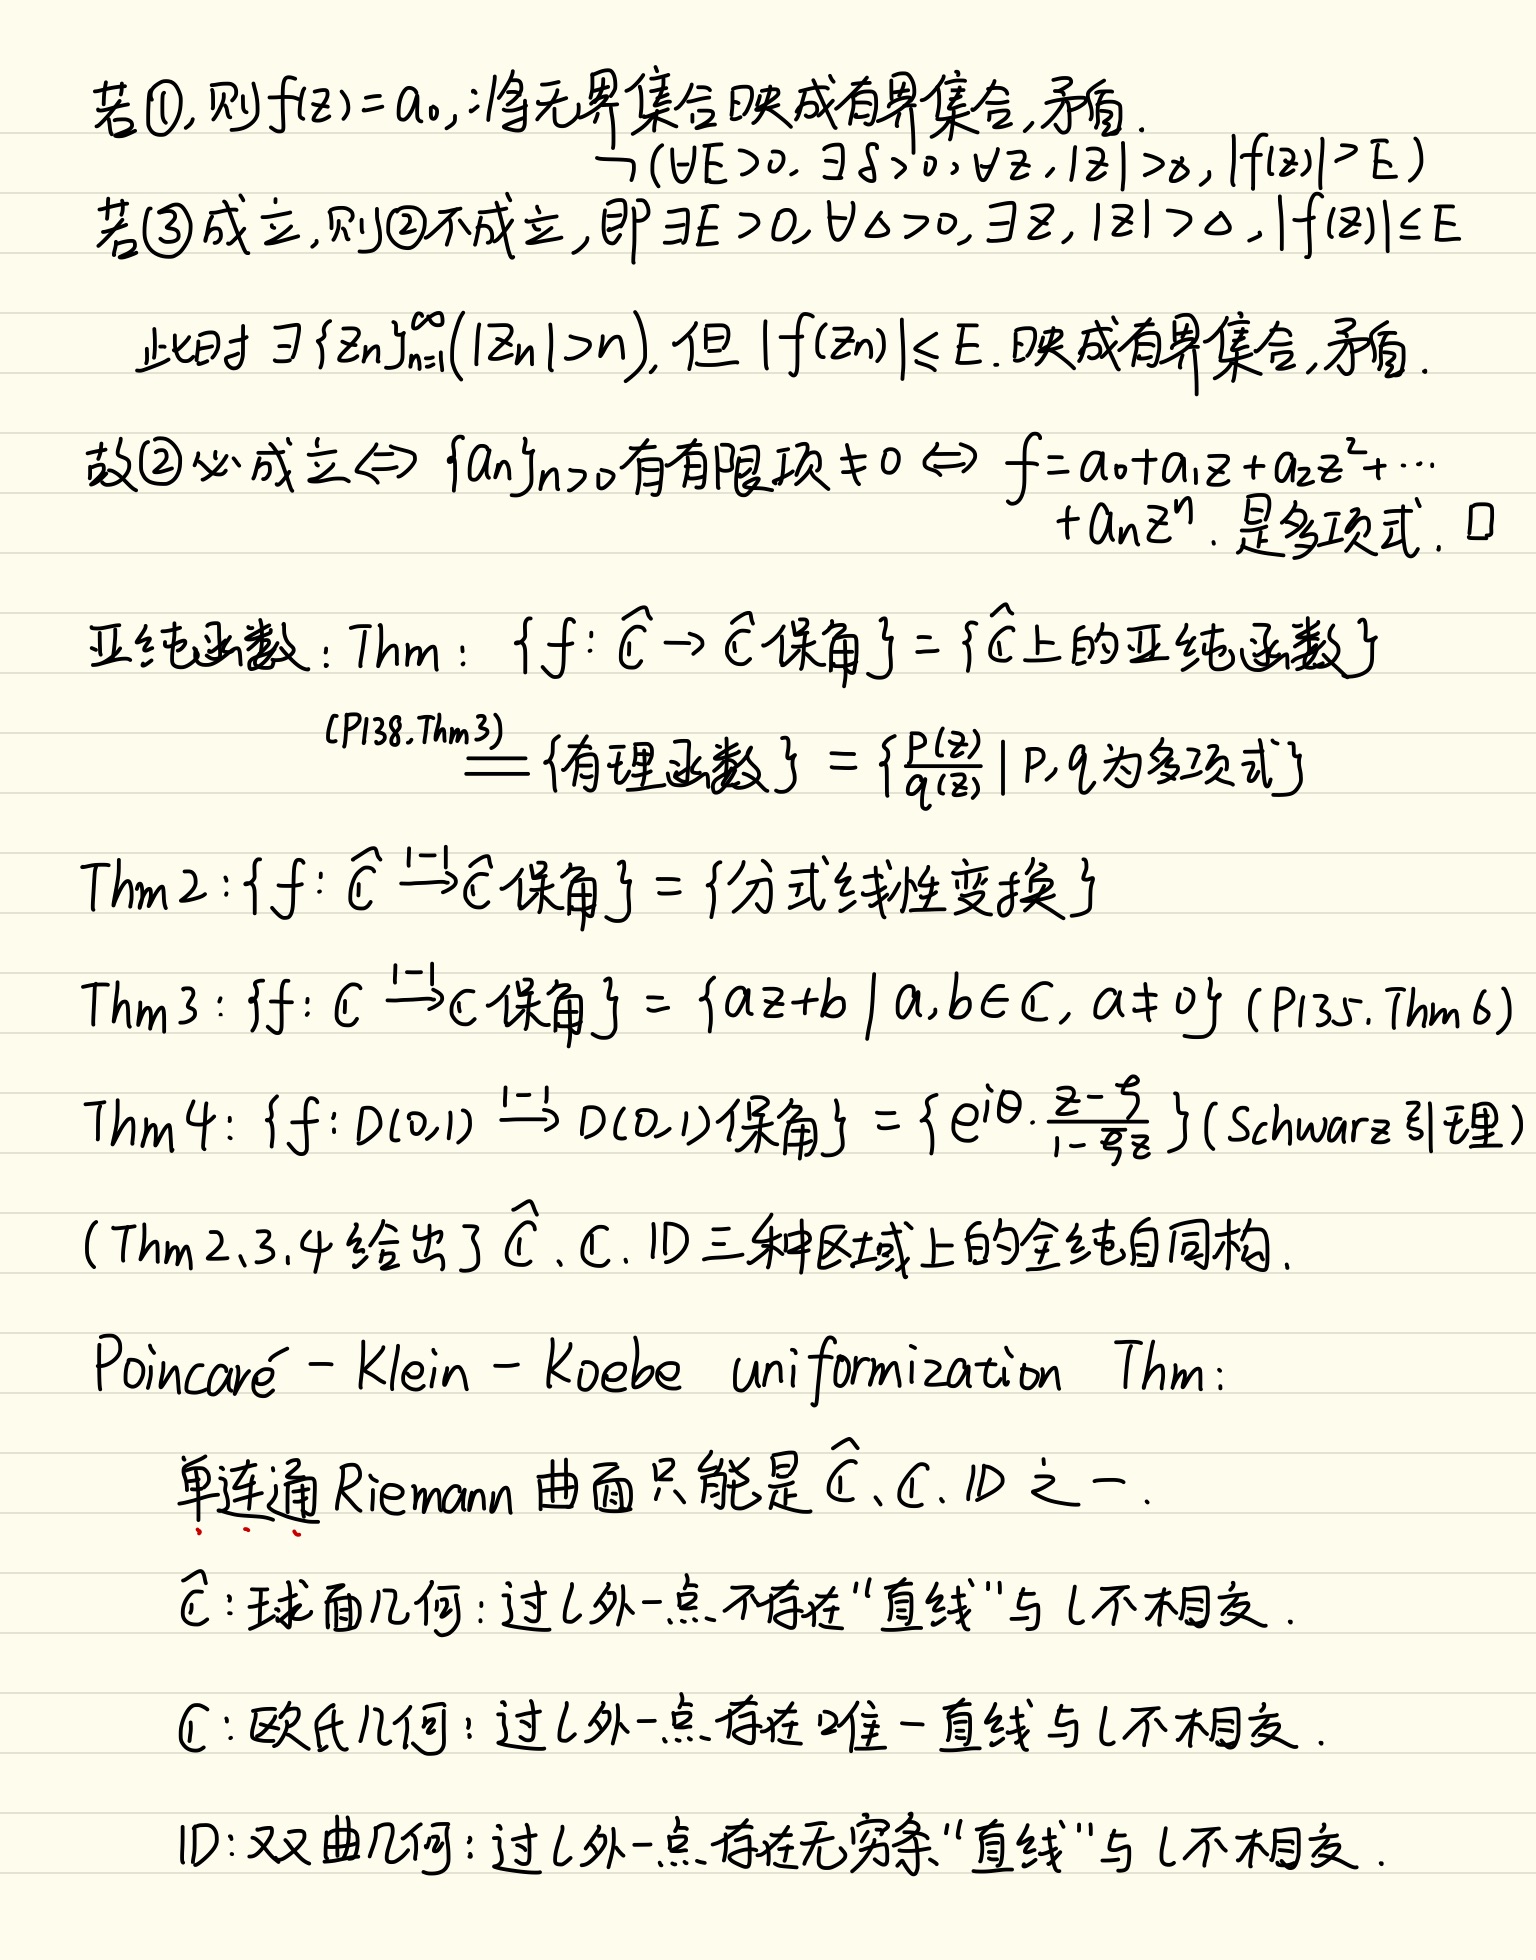 若①,则f(z)=a₀,:将无界集合映成有界集合,矛盾.
¬(∀E>0, ∃δ>0, ∀z, |z|>δ, |f(z)|>E)
若③成立,则②不成立,即∃E>0,∀Δ>0,∃z,|z|>Δ,|f(z)|≤E
此时∃{zₙ}ₙ₌₁^∞(|zₙ|>n),但|f(zₙ)|≤E.映成有界集合,矛盾.
故②必成立⇔{aₙ}ₙ>₀有有限项≠0⇔f=a₀+a₁z+a₂z²+⋯
+aₙzⁿ.是多项式.□
亚纯函数:Thm:{f:Ĉ→Ĉ保角}={Ĉ上的亚纯函数}
(P138.Thm3)
=={有理函数}={p(z)/q(z)|p,q为多项式}
Thm2:{f:Ĉ 1-1→ Ĉ保角}={分式线性变换}
Thm3:{f:ℂ 1-1→ ℂ保角}={az+b|a,b∈ℂ,a≠0}(P135.Thm6)
Thm4:{f:D(0,1) 1-1→ D(0,1)保角}={e^{iθ}·(z-ζ)/(1-ζ̄z)}(Schwarz引理)
(Thm2、3、4给出了Ĉ、ℂ、𝔻三种区域上的全纯自同构.
Poincaré-Klein-Koebe uniformization Thm:
单连通Riemann曲面只能是Ĉ、ℂ、𝔻之一.
Ĉ:球面几何:过l外一点不存在“直线”与l不相交.
ℂ:欧氏几何:过l外一点存在唯一直线与l不相交.
𝔻:双曲几何:过l外一点存在无穷条“直线”与l不相交.